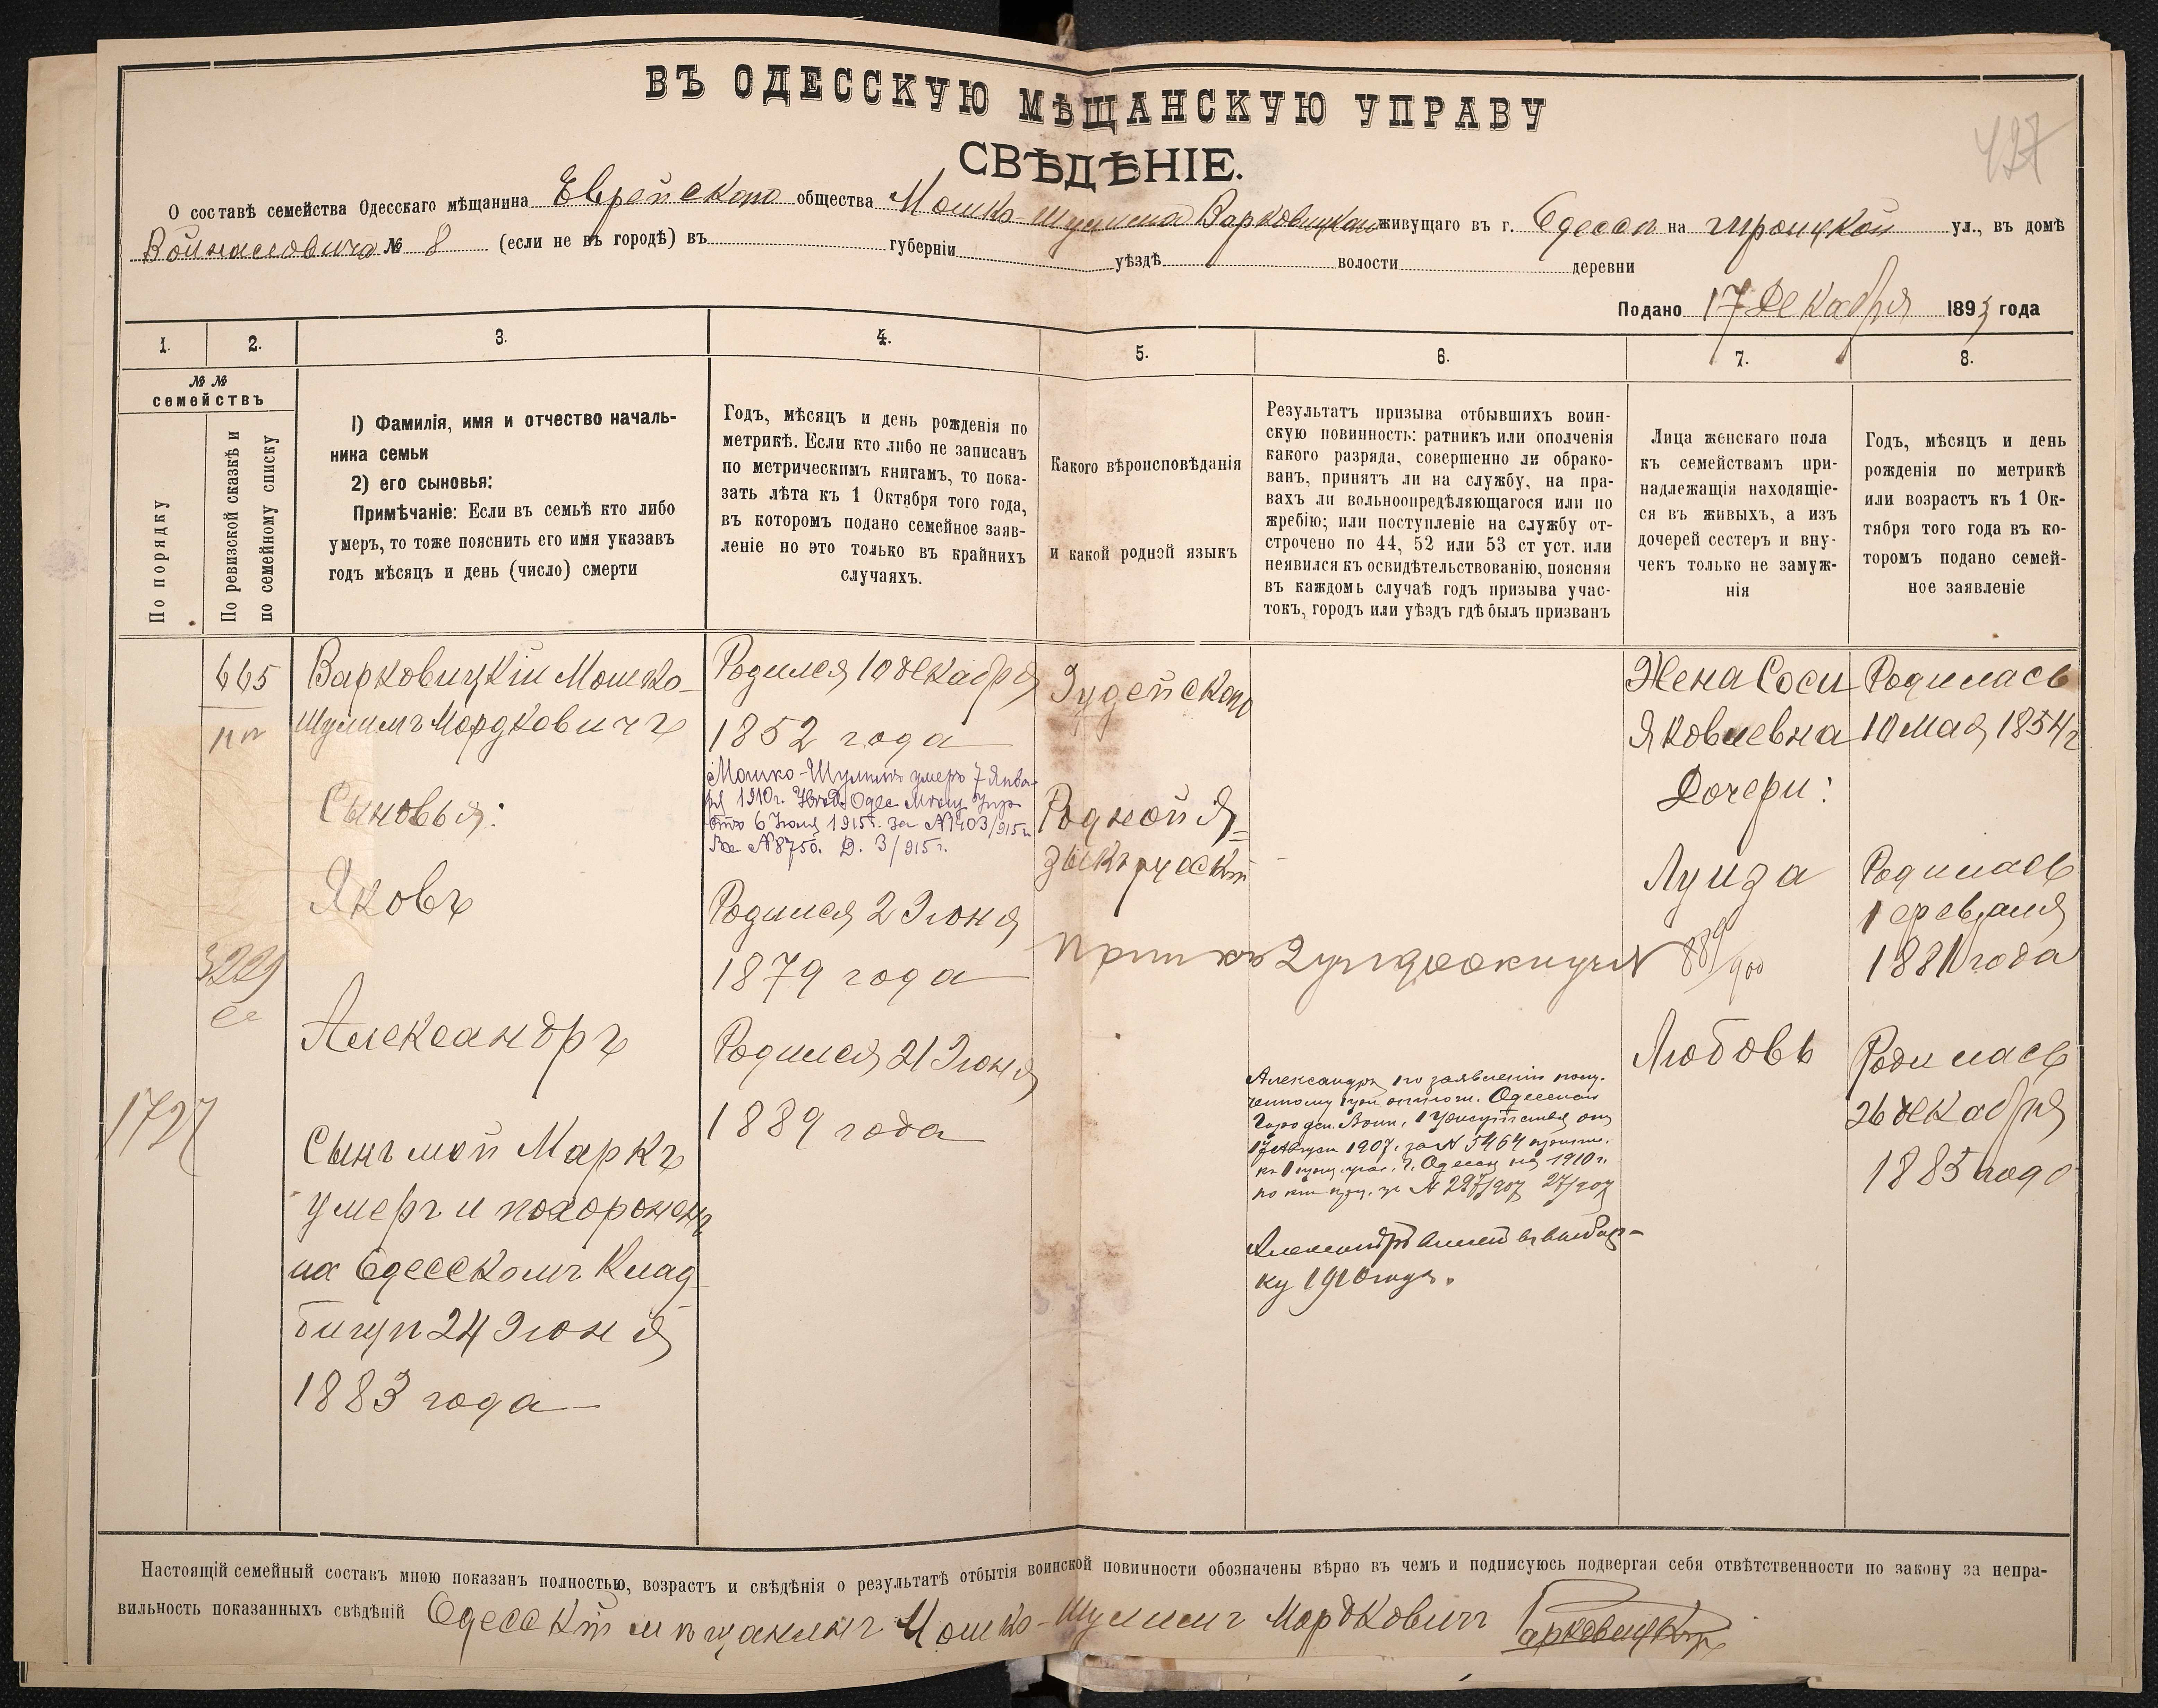 427
ВЪ ОДЕССКУЮ МѢЩАНСКУЮ УПРАВУ
СВѢДѢНІЕ.
О составѣ семейства Одесскаго мѣщанина Еврейскаго общества Мошко-Шулима Варковицкаго живущаго въ г. Одессѣ на Троицкой ул., въ домѣ
№ 8 (если не въ городѣ) въ губерніи уѣздѣ волости деревни
Подано 17 Декабря 1893 года
1. 2. 3. 4. 5. 6. 7. 8.
№ №
семействъ
По порядку
По ревизской сказкѣ и
по семейному списку
1) Фамилія, имя и отчество началь-
ника семьи
2) его сыновья:
Примѣчаніе: Если въ семьѣ кто либо
умеръ, то тоже пояснить его имя указавъ
годъ мѣсяцъ и день (число) смерти
Годъ, мѣсяцъ и день рожденія по
метрикѣ. Если кто либо не записанъ
по метрическимъ книгамъ, то пока-
зать лѣта къ 1 Октября того года,
въ которомъ подано семейное заяв-
леніе но это только въ крайнихъ
случаяхъ.
Какого вѣроисповѣданія
и какой родной языкъ
Результатъ призыва отбывшихъ воин-
скую повинность: ратникъ или ополченія
какого разряда, совершенно ли обрако-
ванъ, принятъ ли на службу, на пра-
вахъ ли вольноопредѣляющагося или по
жребію; или поступленіе на службу от-
строчено по 44, 52 или 53 ст уст. или
неявился къ освидѣтельствованію, поясняя
въ каждомъ случаѣ годъ призыва учас-
токъ, городъ или уѣздъ гдѣ былъ призванъ
Лица женскаго пола
къ семействамъ при-
надлежащія находящіе-
ся въ живыхъ, а изъ
дочерей сестеръ и вну-
чекъ только не замуж-
нія
Годъ, мѣсяцъ и день
рожденія по метрикѣ
или возрастъ къ 1 Ок-
тября того года въ ко-
торомъ подано семей-
ное заявленіе
665
Варковицкій Мошко-
Шулимъ Мордковичъ
Сыновья:
Яковъ
Александръ
1727
Сынъ мой Маркъ
умеръ и похороненъ
на Одесскомъ Клад
бищѣ 24 Іюня
1883 года
Родился 10 декабря
1852 года
Мошко-Шулимъ умеръ 7 Янва-
ря 1910г. Одес Мѣщ Упр
отъ 6 Іюля 1915г. за №1403/915г.
Вх №8750. Д. 3/915г.
Родился 2 Іюня
1879 года
Родился 21 Іюня
1889 года
Іудейскаго
Родной я=
зыкъ русскій
889/900
Александръ по заявленію
Одесской
Городск. Воин. Присутствія отъ
1907г. за № 5464
г. Одессы на 1910г.
№ 297/907 27/907
Александръ
ку 1910 года.
Жена Соси
Яковлевна
Дочери:
Луиза
Любовь
Родилась
10 мая 1854г
Родилась
1 февраля
1881 года
Родилась
26 декабря
1885 года
Настоящій семейный составъ мною показанъ полностью, возрастъ и свѣдѣнія о результатѣ отбытія воинской повинности обозначены вѣрно въ чемъ и подписуюсь подвергая себя отвѣтственности по закону за непра-
вильность показанныхъ свѣдѣній Одесскій мѣщанинъ Мошко-Шулимъ Мордковичъ Варковицкій